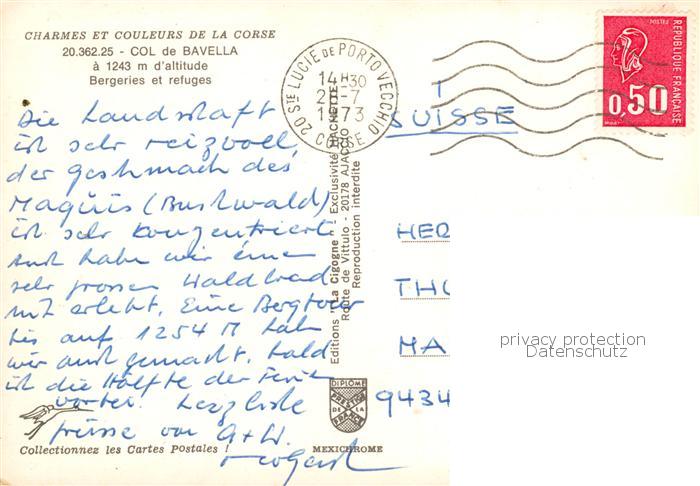 CHARMES ET COULEURS DE LA CORSE
20.362.25 - COL de BAVELLA
à 1243 m d'altitude
Bergeries et refuges
Die Landschaft
ist sehr reizvoll,
der geschmach des
Maquis (Buschwald)
ist sehr konzentriert
auch haben wir einen
sehr grossen Waldbrand
mit erlebt. Eine Bergtour
bis auf 1254 M hab
wir auch gemacht. bald
ist die Hälfte der Ferien
vorbei. herzliche
grüsse von A+W.
Collectionnez les Cartes Postales !
20 STE LUCIE DE PORTO VECCHIO
14H30
2 -7
1973
CORSE
Editions "La Cigogne" Exclusivité HACHETTE
Route de Vittulo - 20178 AJACCIO
Reproduction interdite
DIPLOME
PRESTIGE
DE LA
FRANCE
MEXICHROME
REPUBLIQUE FRANÇAISE
0,50
SUISSE
HE
TH
MA
9434
privacy protection
Datenschutz